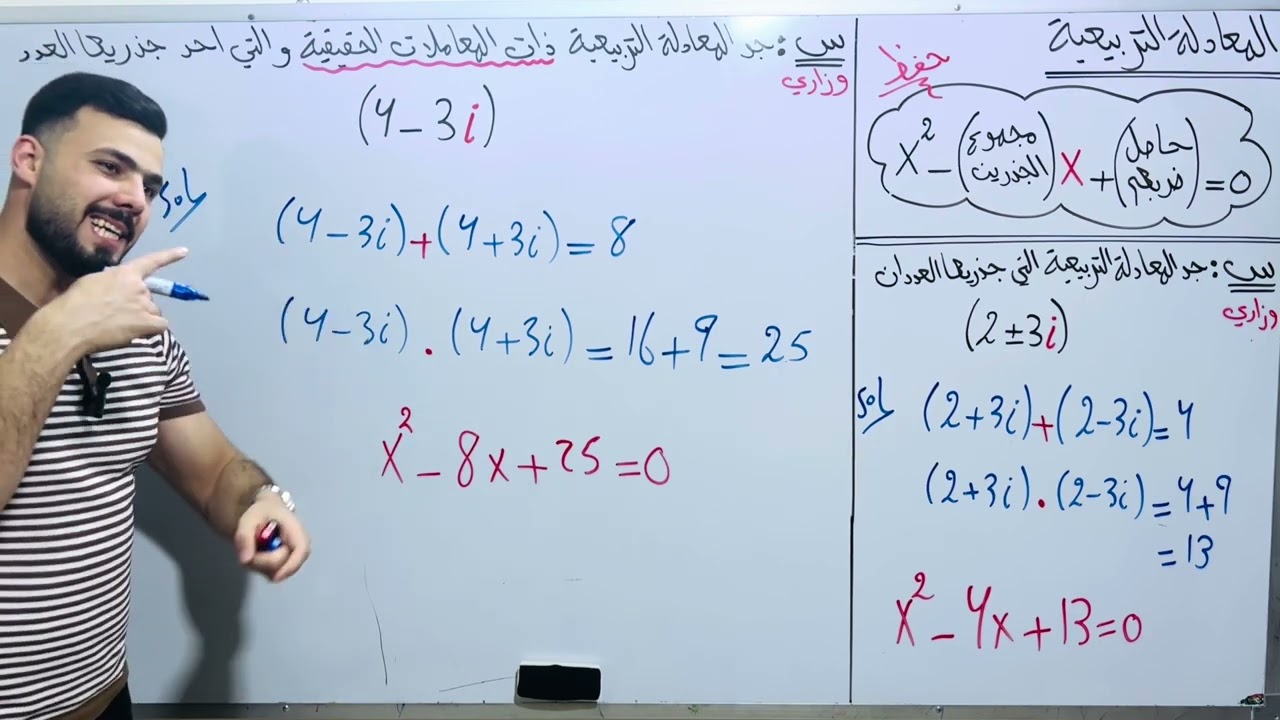 المعادلة التربيعية
حفظ
X² - (مجموع الجذرين) X + (حاصل ضربهم) = 0
س: جد المعادلة التربيعية التي جذريها العددان
وزاري
(2 ± 3i)
sol/
(2+3i)+(2-3i)=4
(2+3i).(2-3i)=4+9
=13
X² - 4x + 13 = 0
س: جد المعادلة التربيعية ذات المعاملات الحقيقية والتي احد جذريها العدد
وزاري
(4 - 3i)
sol/
(4-3i)+(4+3i)=8
(4-3i).(4+3i)=16+9=25
X² - 8x + 25 = 0